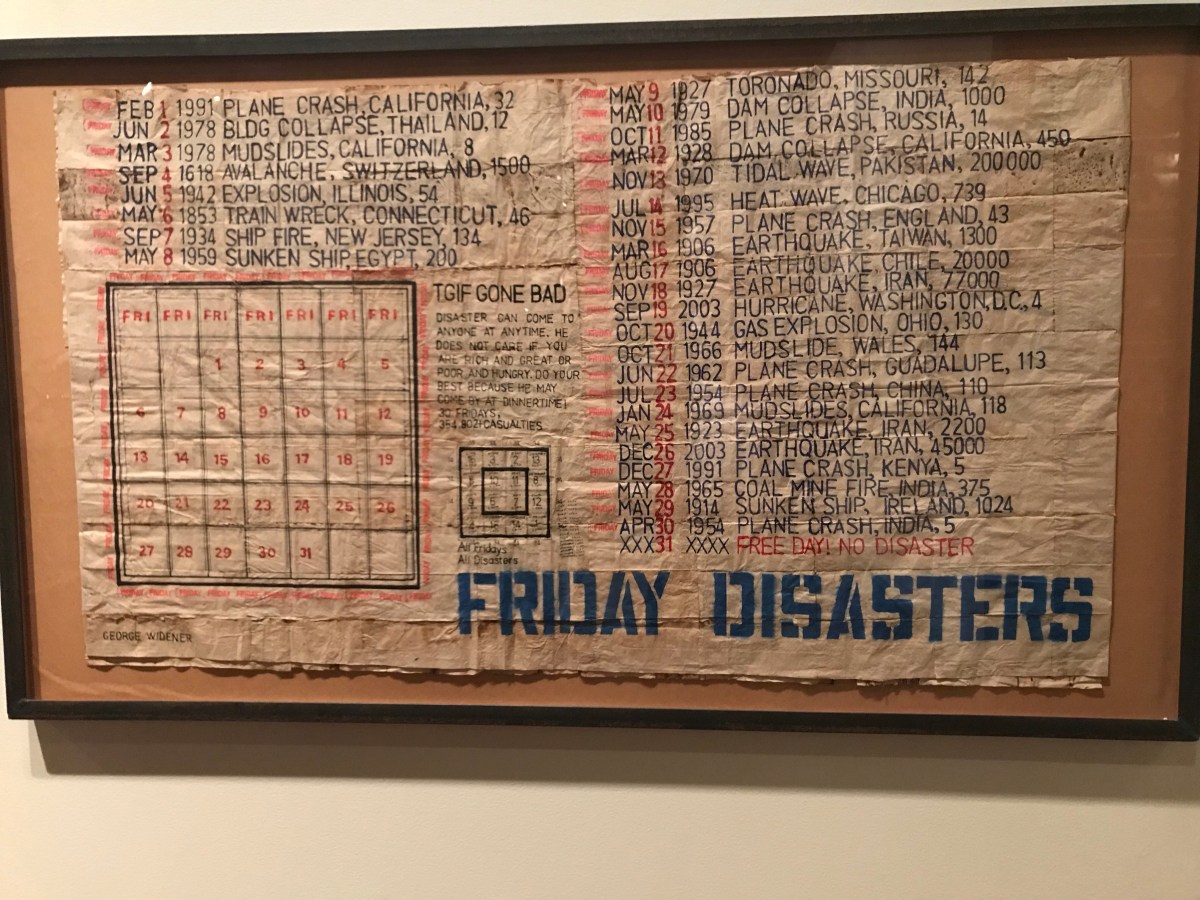 FEB 1 1991 PLANE CRASH, CALIFORNIA, 32
JUN 2 1978 BLDG COLLAPSE, THAILAND, 12
MAR 3 1978 MUDSLIDES, CALIFORNIA, 8
SEP 4 1618 AVALANCHE, SWITZERLAND, 1500
JUN 5 1942 EXPLOSION, ILLINOIS, 54
MAY 6 1853 TRAIN WRECK, CONNECTICUT, 46
SEP 7 1934 SHIP FIRE, NEW JERSEY, 134
MAY 8 1959 SUNKEN SHIP, EGYPT, 200
MAY 9 1927 TORONADO, MISSOURI, 142
MAY 10 1979 DAM COLLAPSE, INDIA, 1000
OCT 11 1985 PLANE CRASH, RUSSIA, 14
MAR 12 1928 DAM COLLAPSE, CALIFORNIA, 450
NOV 13 1970 TIDAL WAVE, PAKISTAN, 200000
JUL 14 1995 HEAT WAVE, CHICAGO, 739
NOV 15 1957 PLANE CRASH, ENGLAND, 43
MAR 16 1906 EARTHQUAKE, TAIWAN, 1300
AUG 17 1906 EARTHQUAKE, CHILE, 20000
NOV 18 1927 EARTHQUAKE, IRAN, 77000
SEP 19 2003 HURRICANE, WASHINGTON, D.C., 4
OCT 20 1944 GAS EXPLOSION, OHIO, 130
OCT 21 1966 MUDSLIDE, WALES, 144
JUN 22 1962 PLANE CRASH, GUADALUPE, 113
JUL 23 1954 PLANE CRASH, CHINA, 110
JAN 24 1969 MUDSLIDES, CALIFORNIA, 118
MAY 25 1923 EARTHQUAKE, IRAN, 2200
DEC 26 2003 EARTHQUAKE, IRAN, 45000
DEC 27 1991 PLANE CRASH, KENYA, 5
MAY 28 1965 COAL MINE FIRE INDIA, 375
MAY 29 1914 SUNKEN SHIP, IRELAND, 1024
APR 30 1954 PLANE CRASH, INDIA, 5
XXX 31 XXXX FREE DAY! NO DISASTER
FRI FRI FRI FRI FRI FRI FRI
1 2 3 4 5
6 7 8 9 10 11 12
13 14 15 16 17 18 19
20 21 22 23 24 25 26
27 28 29 30 31
TGIF GONE BAD
DISASTER CAN COME TO
ANYONE AT ANYTIME. HE
DOES NOT CARE IF YOU
ARE RICH AND GREAT OR
POOR AND HUNGRY. DO YOUR
BEST BECAUSE HE MAY
COME BY AT DINNERTIME!
30 FRIDAYS,
354,802 CASUALTIES
All Fridays
All Disasters
FRIDAY DISASTERS
GEORGE WIDENER